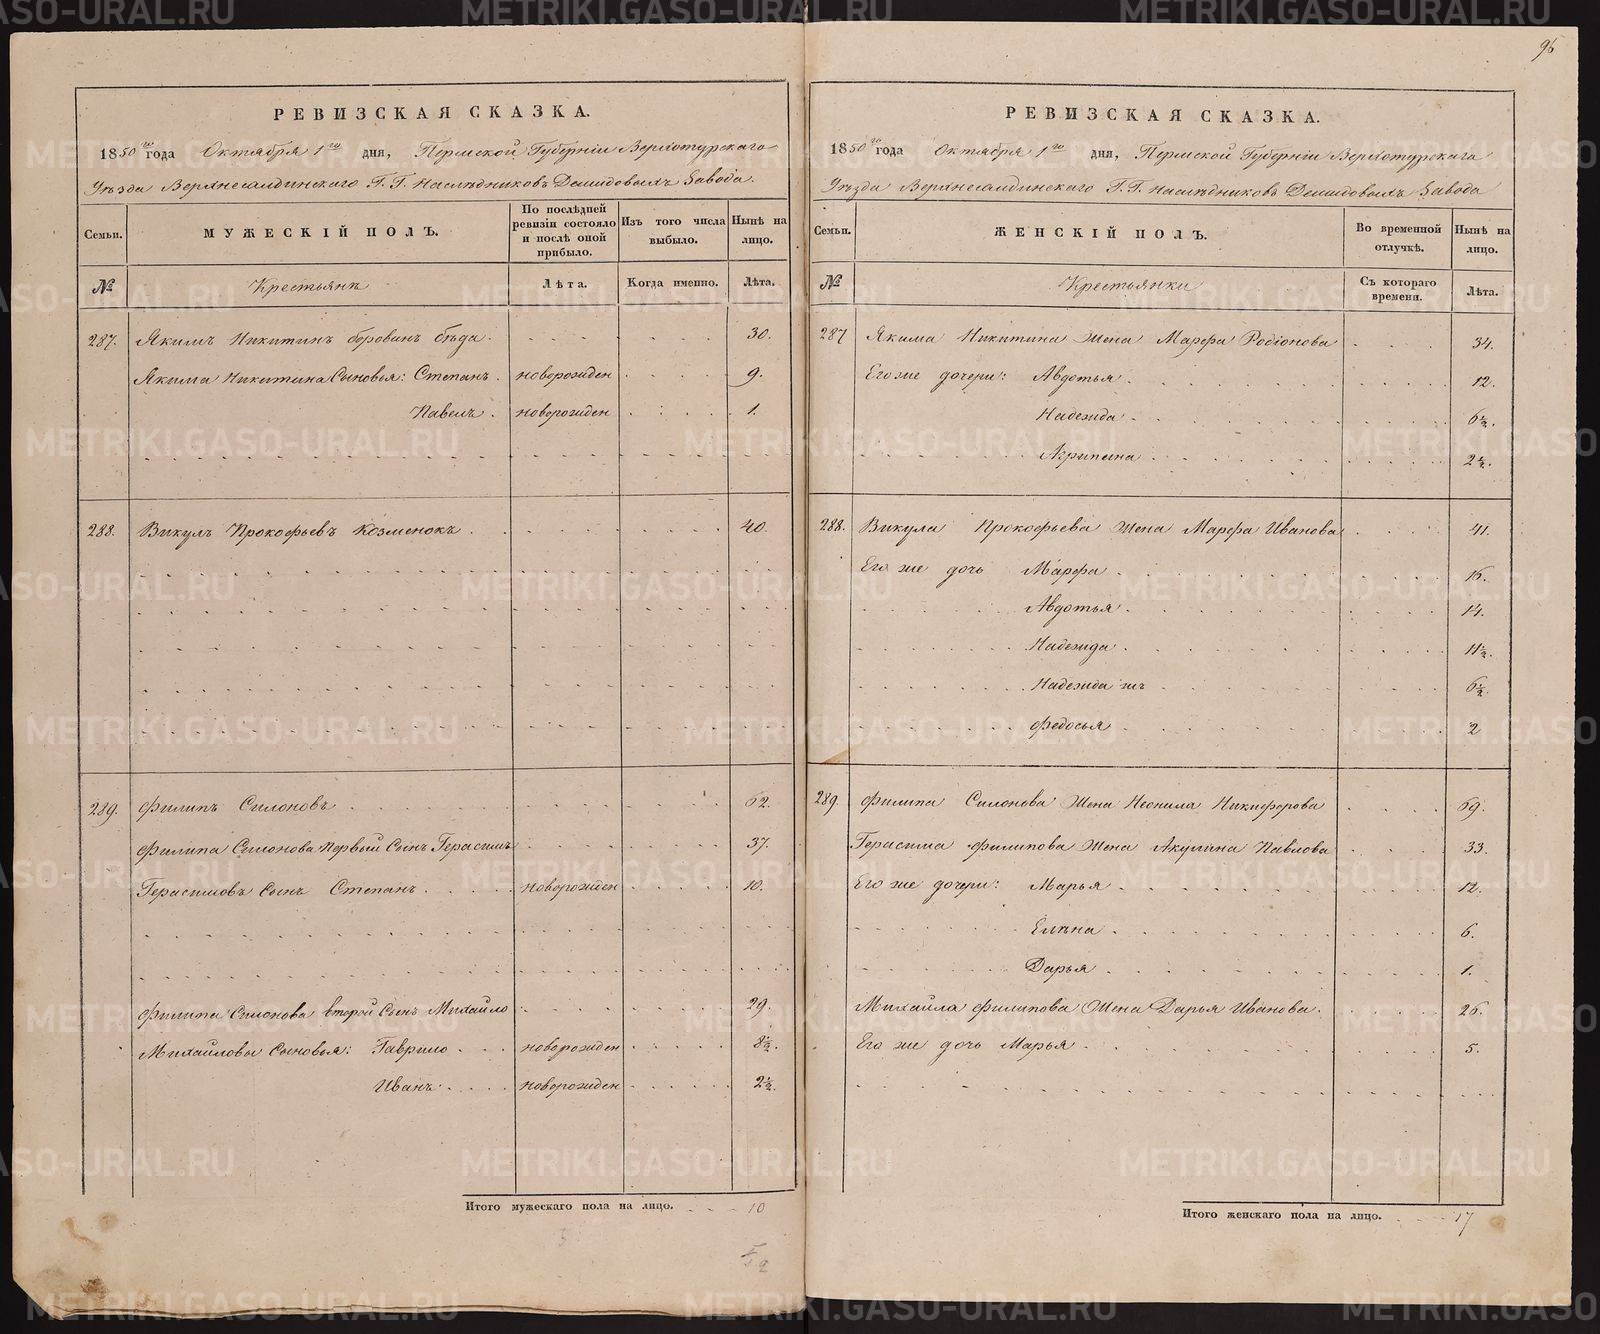 96
РЕВИЗСКАЯ СКАЗКА.
1850го года Октября 1го дня, Пермской Губерніи Верхотурскаго
Уѣзда Верхнесалдинскаго Г.Г. Наслѣдниковъ Демидовыхъ Завода.
Семьи. МУЖЕСКІЙ ПОЛЪ. По послѣдней ревизіи состояло и послѣ оной прибыло. Изъ того числа выбыло. Нынѣ на лицо.
№ Крестьянъ Лѣта. Когда именно. Лѣта.
287. Якимъ Никитинъ 30.
Якима Никитина Сыновья: Степанъ. новорожден 9.
Павелъ. новорожден 1.
288. Викулъ Прокофьевъ Козменокъ. 40.
289. Филипъ Силоновъ 62.
Филипа Силонова Первый Сынъ Герасимъ 37.
Герасимовъ Сынъ Степанъ. новорожден 10.
Филипа Силонова второй Сынъ Михайло 29.
Михайловы Сыновья: Гаврило новорожден 8½.
Иванъ новорожден 2½.
Итого мужескаго пола на лицо. 10
РЕВИЗСКАЯ СКАЗКА.
1850го года Октября 1го дня, Пермской Губерніи Верхотурскаго
Уѣзда Верхнесалдинскаго Г.Г. Наслѣдниковъ Демидовыхъ Завода
Семьи. ЖЕНСКІЙ ПОЛЪ. Во временной отлучкѣ. Нынѣ на лицо.
№ Крестьянки Съ котораго времени. Лѣта.
287 Якима Никитина Жена Марфа Родіонова 34.
Его же дочери: Авдотья 12.
Надежда 6½.
Акрипина 2½.
288. Викула Прокофьева Жена Марфа Иванова 41.
Его же дочь Марфа 16.
Авдотья. 14.
Надежда. 11½.
Надежда же 6½.
Федосья 2
289. Филипа Силонова Жена Неонила Никифорова 69.
Герасима Филипова Жена Акулина Павлова 33.
Его же дочери: Марья 12.
Елѣна 6.
Дарья 1.
Михайла Филипова Жена Дарья Иванова. 26.
Его же дочь Марья 5.
Итого женскаго пола на лицо. 17
METRIKI.GASO-URAL.RU